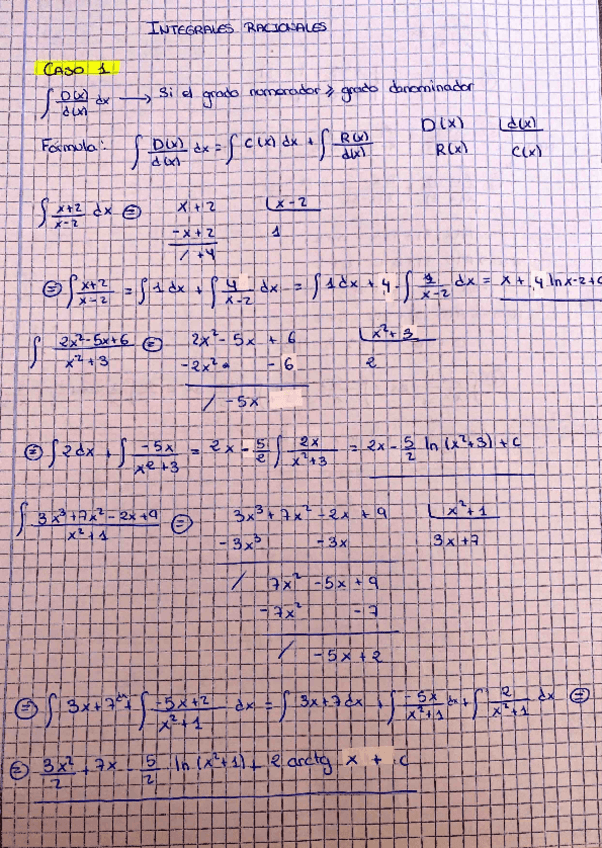 INTEGRALES RACIONALES
CASO 1
∫ D(x)/d(x) dx → Si el grado numerador ≥ grado denominador
Fórmula: ∫ D(x)/d(x) dx = ∫ C(x) dx + ∫ R(x)/d(x)
D(x) |d(x)
R(x) C(x)
∫ x+2/x-2 dx ⊜ x+2 |x-2
-x+2 1
/ +4
⊜ ∫ x+2/x-2 = ∫ 1 dx + ∫ 4/x-2 dx = ∫ 1 dx + 4·∫ 1/x-2 dx = x + 4 ln x-2 + c
∫ 2x²-5x+6/x²+3 ⊜ 2x² - 5x + 6 |x²+3
-2x² - 6 2
/ -5x
⊜ ∫ 2 dx + ∫ -5x/x²+3 = 2x - 5/2 ∫ 2x/x²+3 = 2x - 5/2 ln (x²+3) + c
∫ 3x³+7x²-2x+9/x²+1 ⊜ 3x³+7x²-2x+9 |x²+1
-3x³ -3x 3x+7
/ 7x² -5x +9
-7x² -7
/ -5x+2
⊜ ∫ 3x+7 dx + ∫ -5x+2/x²+1 dx = ∫ 3x+7 dx + ∫ -5x/x²+1 dx + ∫ 2/x²+1 dx ⊜
⊜ 3x²/2 + 7x - 5/2 ln (x²+1) + 2 arctg x + c